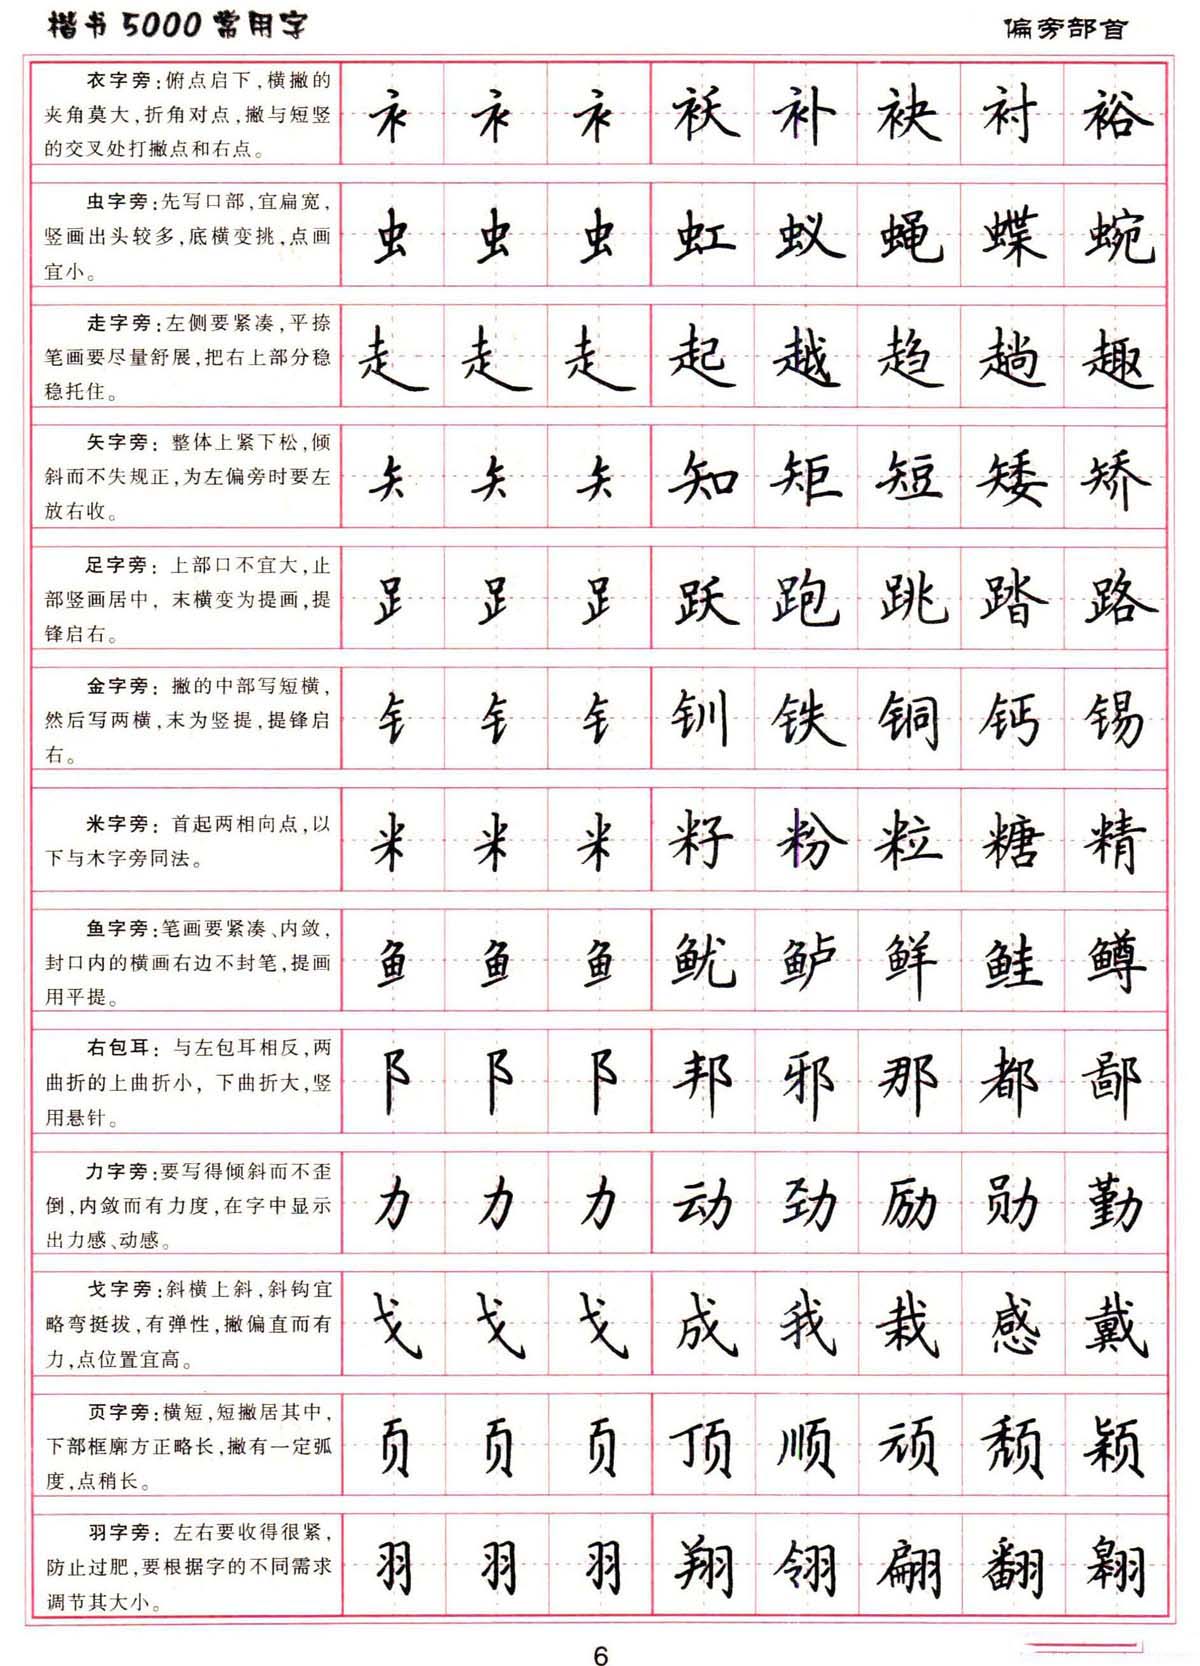 楷书5000常用字 偏旁部首
衣字旁:俯点启下,横撇的
夹角莫大,折角对点,撇与短竖
的交叉处打撇点和右点。
衤 衤 衤 袄 补 袂 衬 裕
虫字旁:先写口部,宜扁宽,
竖画出头较多,底横变挑,点画
宜小。
虫 虫 虫 虹 蚁 蝇 蝶 蜿
走字旁:左侧要紧凑,平捺
笔画要尽量舒展,把右上部分稳
稳托住。
走 走 走 起 越 趋 趟 趣
矢字旁:整体上紧下松,倾
斜而不失规正,为左偏旁时要左
放右收。
矢 矢 矢 知 矩 短 矮 矫
足字旁:上部口不宜大,止
部竖画居中,末横变为提画,提
锋启右。
𧾷 𧾷 𧾷 跃 跑 跳 踏 路
金字旁:撇的中部写短横,
然后写两横,末为竖提,提锋启
右。
钅 钅 钅 钏 铁 铜 钙 锡
米字旁:首起两相向点,以
下与木字旁同法。
米 米 米 籽 粉 粒 糖 精
鱼字旁:笔画要紧凑、内敛,
封口内的横画右边不封笔,提画
用平提。
鱼 鱼 鱼 鱿 鲈 鲜 鲑 鳟
右包耳:与左包耳相反,两
曲折的上曲折小,下曲折大,竖
用悬针。
阝 阝 阝 邦 邪 那 都 鄙
力字旁:要写得倾斜而不歪
倒,内敛而有力度,在字中显示
出力感、动感。
力 力 力 动 劲 励 勋 勤
戈字旁:斜横上斜,斜钩宜
略弯挺拔,有弹性,撇偏直而有
力,点位置宜高。
戈 戈 戈 成 我 栽 感 戴
页字旁:横短,短撇居其中,
下部框廓方正略长,撇有一定弧
度,点稍长。
页 页 页 顶 顺 顽 颓 颖
羽字旁:左右要收得很紧,
防止过肥,要根据字的不同需求
调节其大小。
羽 羽 羽 翔 翎 翩 翻 翱
6